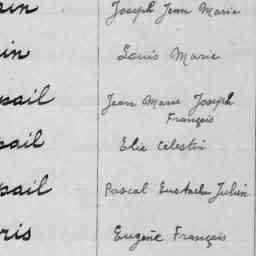 ain Joseph Jean Marie
in Louis Marie
pail Jean Marie Joseph
François
pail Elie Celestin
pail Pascal Eustache Julien
ris Eugène François